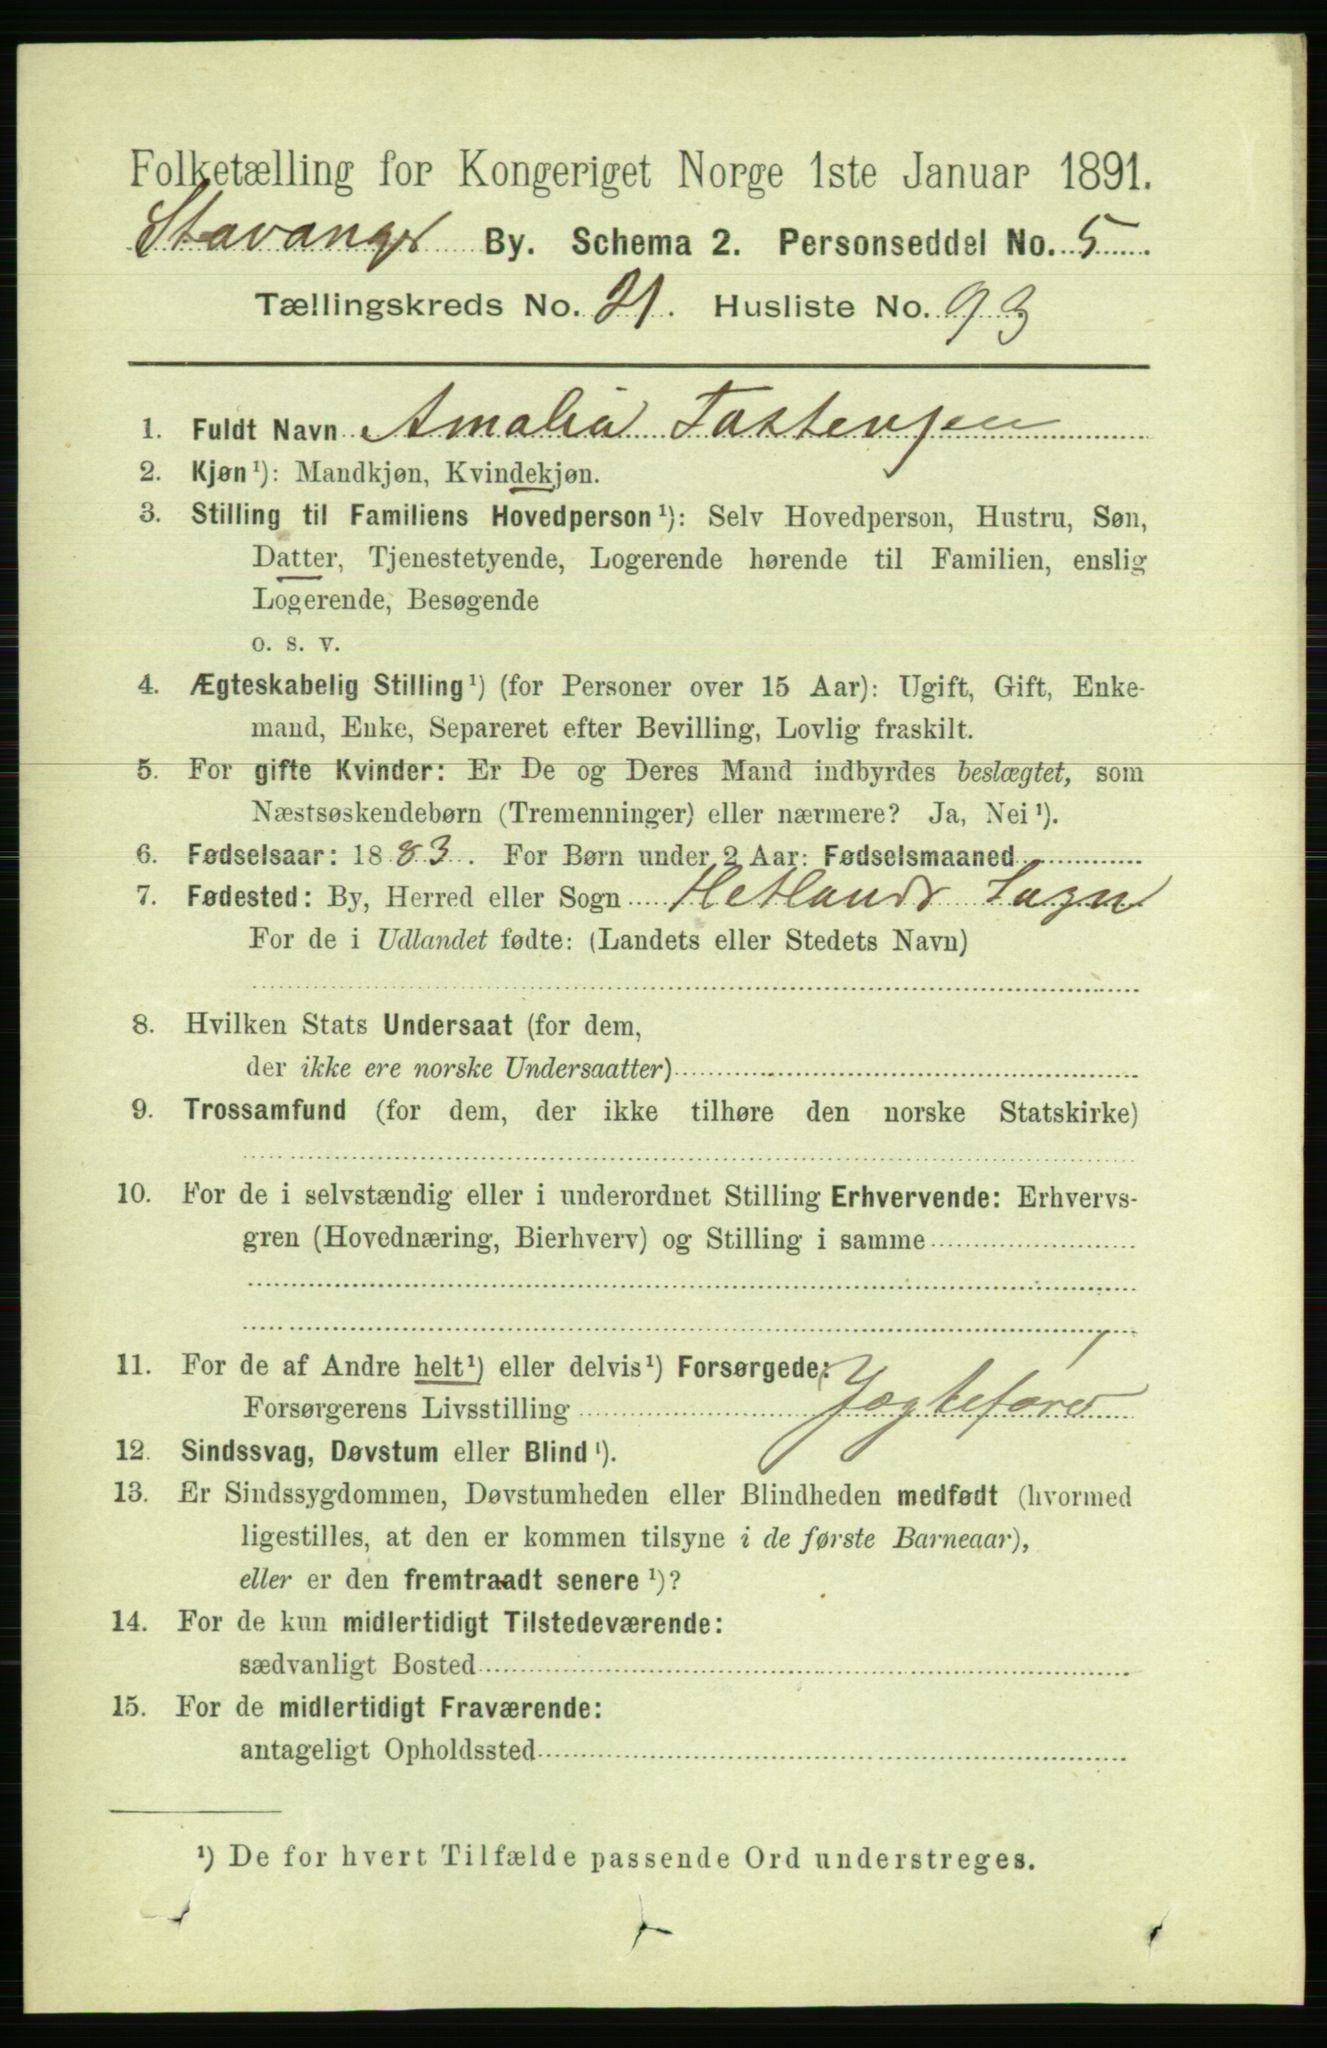 Folketælling for Kongeriget Norge 1ste Januar 1891.
Stavanger By. Schema 2. Personseddel No. 5
Tællingskreds No. 21. Husliste No. 93
1. Fuldt Navn Amalia Tastensen
2. Kjøn ¹): Mandkjøn, Kvindekjøn.
3. Stilling til Familiens Hovedperson ¹): Selv Hovedperson, Hustru, Søn,
Datter, Tjenestetyende, Logerende hørende til Familien, enslig
Logerende, Besøgende
o. s. v.
4. Ægteskabelig Stilling ¹) (for Personer over 15 Aar): Ugift, Gift, Enke-
mand, Enke, Separeret efter Bevilling, Lovlig fraskilt.
5. For gifte Kvinder: Er De og Deres Mand indbyrdes beslægtet, som
Næstsøskendebørn (Tremenninger) eller nærmere? Ja, Nei ¹).
6. Fødselsaar: 1883. For Børn under 2 Aar: Fødselsmaaned
7. Fødested: By, Herred eller Sogn Hetlands Sogn
For de i Udlandet fødte: (Landets eller Stedets Navn)
8. Hvilken Stats Undersaat (for dem,
der ikke ere norske Undersaatter)
9. Trossamfund (for dem, der ikke tilhøre den norske Statskirke)
10. For de i selvstændig eller i underordnet Stilling Erhvervende: Erhvervs-
gren (Hovednæring, Bierhverv) og Stilling i samme
11. For de af Andre helt ¹) eller delvis ¹) Forsørgede:
Forsørgerens Livsstilling Jægtefører
12. Sindssvag, Døvstum eller Blind ¹).
13. Er Sindssygdommen, Døvstumheden eller Blindheden medfødt (hvormed
ligestilles, at den er kommen tilsyne i de første Barneaar),
eller er den fremtraadt senere ¹)?
14. For de kun midlertidigt Tilstedeværende:
sædvanligt Bosted
15. For de midlertidigt Fraværende:
antageligt Opholdssted
¹) De for hvert Tilfælde passende Ord understreges.